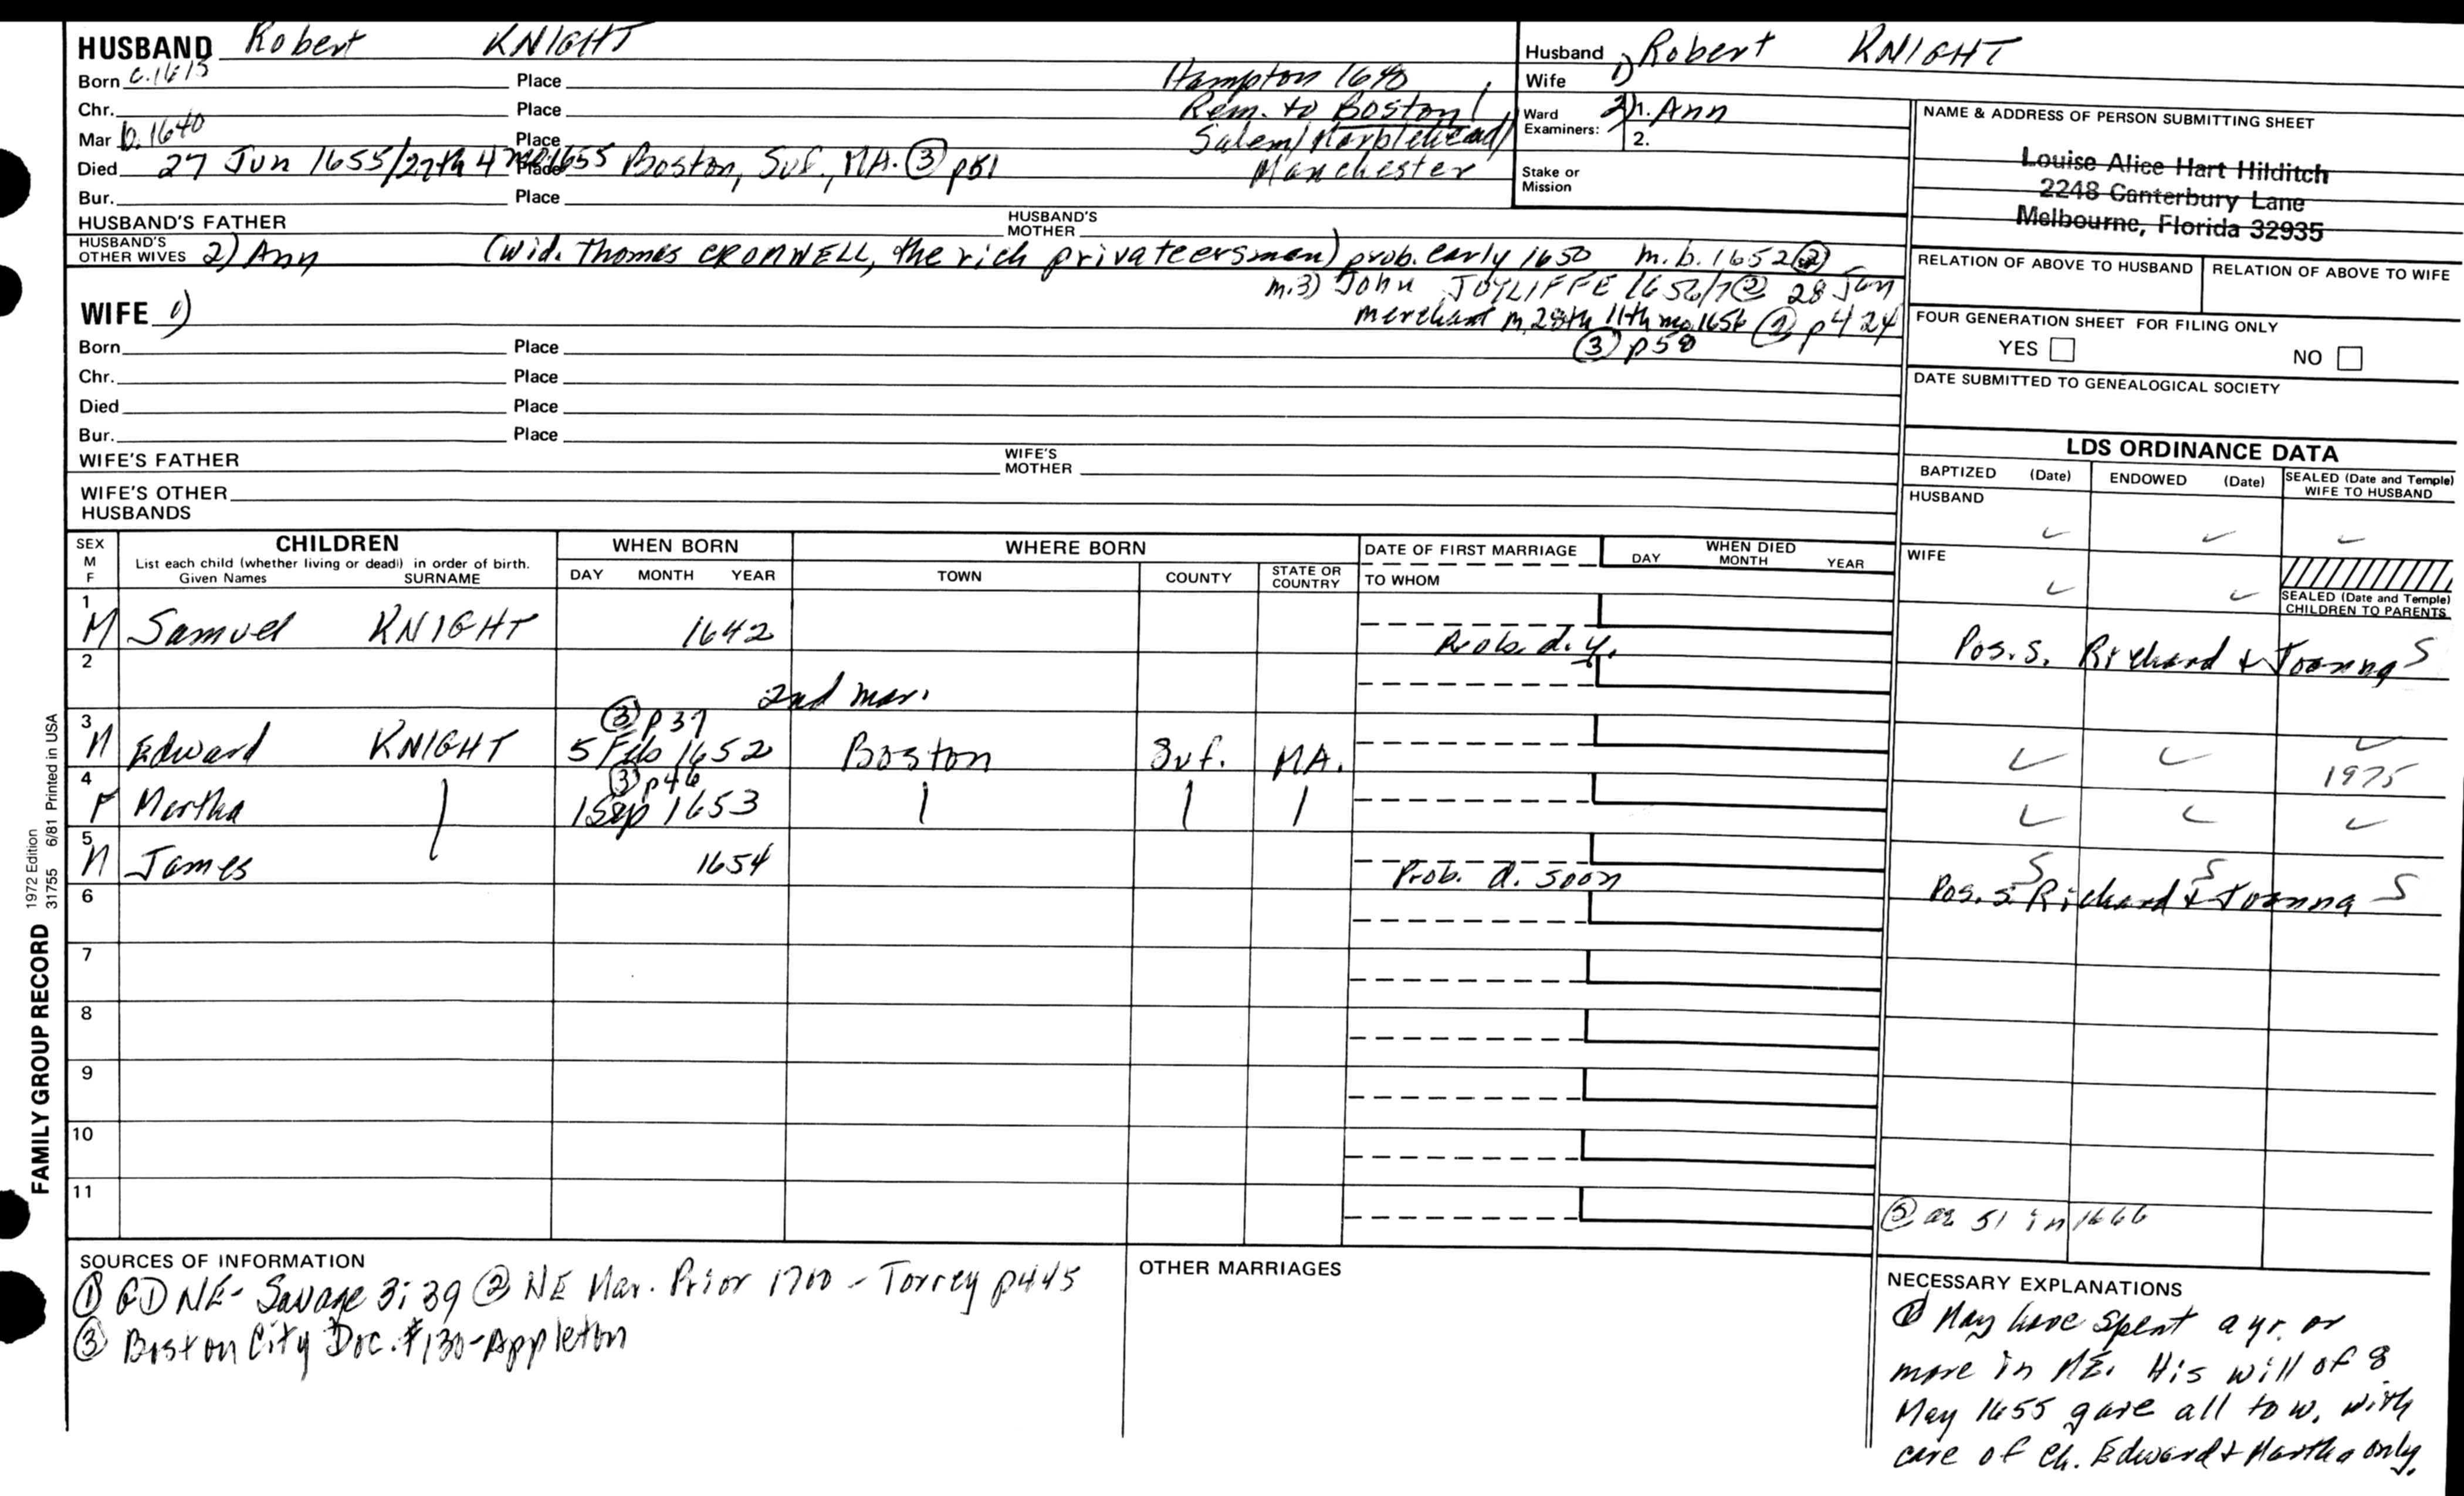 HUSBAND Robert KNIGHT
Born c.1615 Place Hampton 1640
Chr. Place Rem. to Boston/
Mar b.1640 Place Salem/Marblehead/
Died 27 Jun 1655/27th 4 mo 1655 Place Boston, Suf., MA. ③ p51 Manchester
Bur. Place
HUSBAND'S FATHER HUSBAND'S MOTHER
HUSBAND'S OTHER WIVES 2) Ann (wid. Thomas CROMWELL, the rich privateersman) prob. early 1650 m.b. 1652 ②
m.3) John JOYLIFFE 1656/7 ② 28 Jan
merchant m. 28th 11th mo. 1656 ② p424
③ p58
WIFE 1)
Born Place
Chr. Place
Died Place
Bur. Place
WIFE'S FATHER WIFE'S MOTHER
WIFE'S OTHER HUSBANDS
Husband Robert KNIGHT
Wife 1)
Ward Examiners: 1. 2) Ann
2.
Stake or Mission
NAME & ADDRESS OF PERSON SUBMITTING SHEET
Louise Alice Hart Hilditch
2248 Canterbury Lane
Melbourne, Florida 32935
RELATION OF ABOVE TO HUSBAND RELATION OF ABOVE TO WIFE
FOUR GENERATION SHEET FOR FILING ONLY
YES NO
DATE SUBMITTED TO GENEALOGICAL SOCIETY
LDS ORDINANCE DATA
BAPTIZED (Date) ENDOWED (Date) SEALED (Date and Temple) WIFE TO HUSBAND
HUSBAND
WIFE
SEALED (Date and Temple) CHILDREN TO PARENTS
SEX M F CHILDREN WHEN BORN WHERE BORN DATE OF FIRST MARRIAGE WHEN DIED
List each child (whether living or dead) in order of birth.
Given Names SURNAME DAY MONTH YEAR TOWN COUNTY STATE OR COUNTRY TO WHOM DAY MONTH YEAR
1 M Samuel KNIGHT 1642 Prob. d.y. Pos. s. Richard & Joanna S
2 2nd mar.
③ p37
3 M Edward KNIGHT 5 Feb 1652 Boston Suf. MA. 1975
③ p46
4 F Martha 1 Sep 1653
5 M James 1654 Prob. d. soon S S Pos. s. Richard & Joanna S
6
7
8
9
10
11
⑤ ae 51 in 1666
FAMILY GROUP RECORD 1972 Edition 31755 6/81 Printed in USA
SOURCES OF INFORMATION
① GDNE- Savage 3:39 ② NE Mar. Prior 1700 - Torrey p445
③ Boston City Doc. #130-Appleton
OTHER MARRIAGES
NECESSARY EXPLANATIONS
① May have spent a yr. or
more in ME. His will of 8
May 1655 gave all to w. with
care of ch. Edward & Martha only.